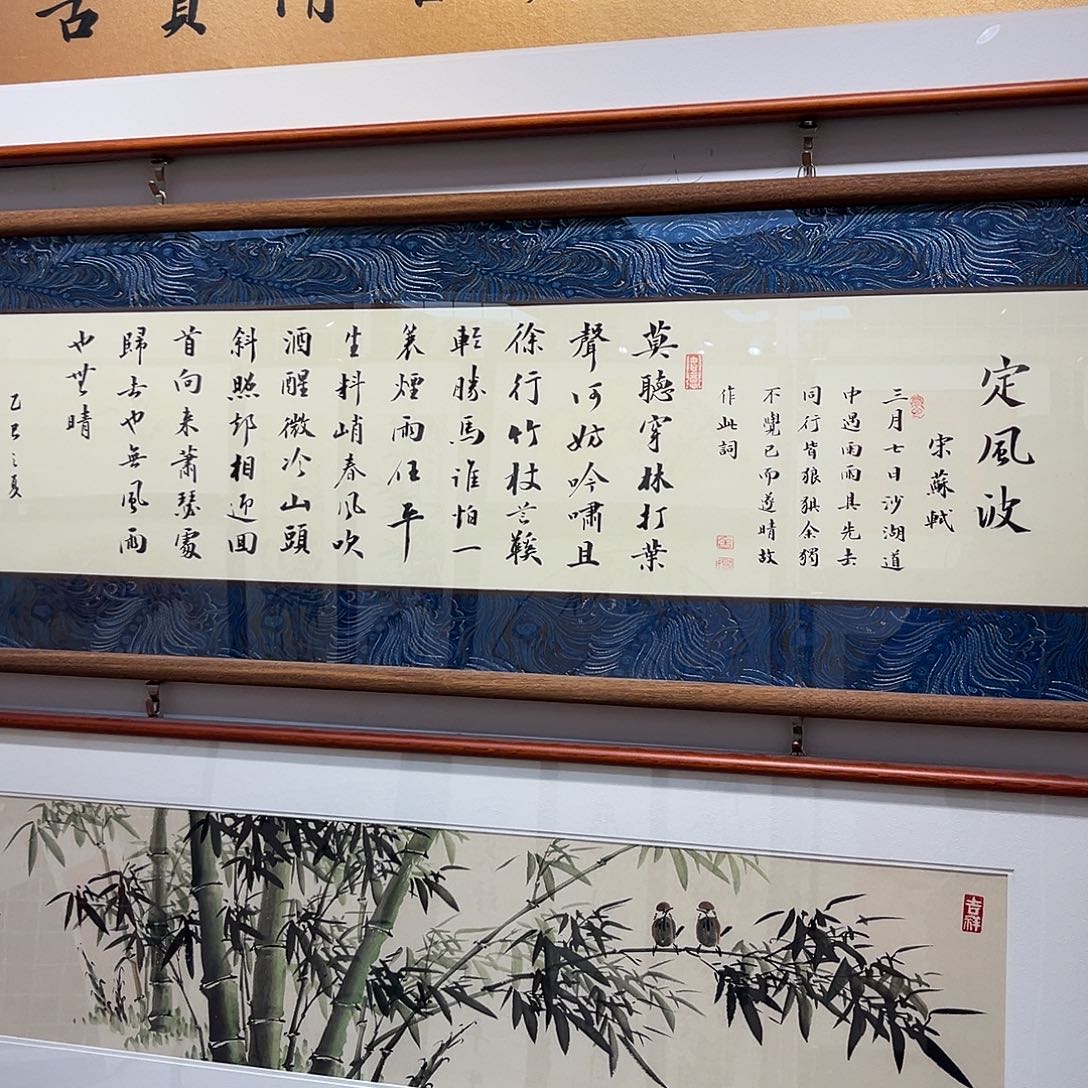 定風波
宋蘇軾
三月七日沙湖道
中遇雨雨具先去
同行皆狼狽余獨
不覺已而遂晴故
作此詞
莫聽穿林打葉
聲何妨吟嘯且
徐行竹杖芒鞵
輕勝馬誰怕一
蓑煙雨任平
生料峭春風吹
酒醒微冷山頭
斜照卻相迎回
首向来蕭瑟處
歸去也無風雨
也無晴
乙巳之夏
吉祥